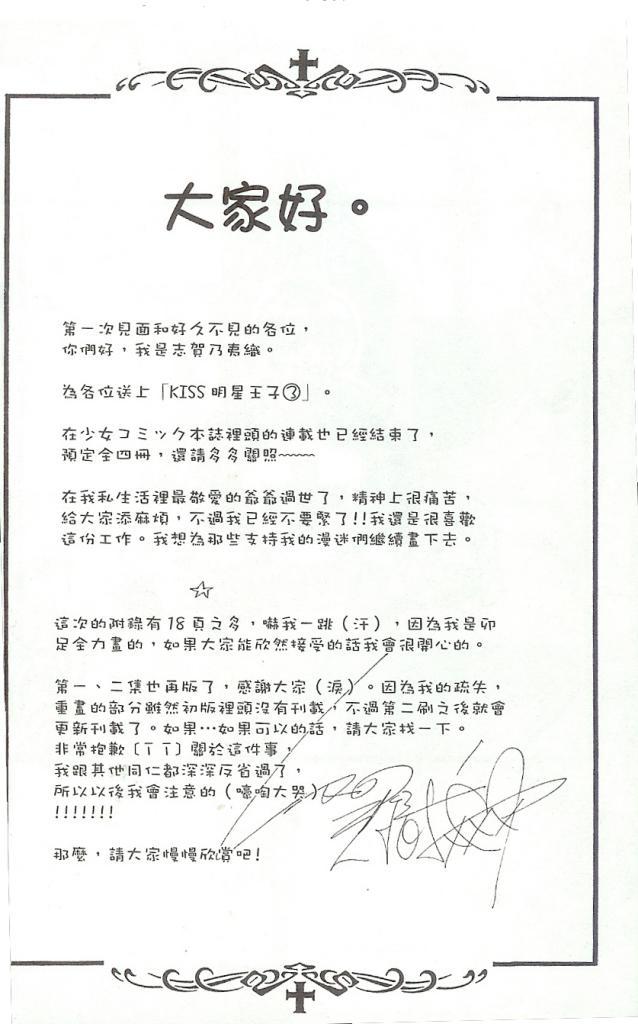 大家好。
第一次見面和好久不見的各位，
你們好，我是志賀乃夷織。
為各位送上「KISS 明星王子③」。
在少女コミック本誌裡頭的連載也已經結束了，
預定全四冊，還請多多關照~~~~~
在我私生活裡最敬愛的爺爺過世了，精神上很痛苦，
給大家添麻煩，不過我已經不要緊了!!我還是很喜歡
這份工作。我想為那些支持我的漫迷們繼續畫下去。
☆
這次的附錄有18頁之多，嚇我一跳（汗），因為我是卯
足全力畫的，如果大家能欣然接受的話我會很開心的。
第一、二集也再版了，感謝大家（淚）。因為我的疏失，
重畫的部分雖然初版裡頭沒有刊載，不過第二刷之後就會
更新刊載了。如果…如果可以的話，請大家找一下。
非常抱歉〔T T〕關於這件事，
我跟其他同仁都深深反省過了，
所以以後我會注意的（嚎啕大哭）
!!!!!!!
那麼，請大家慢慢欣賞吧！